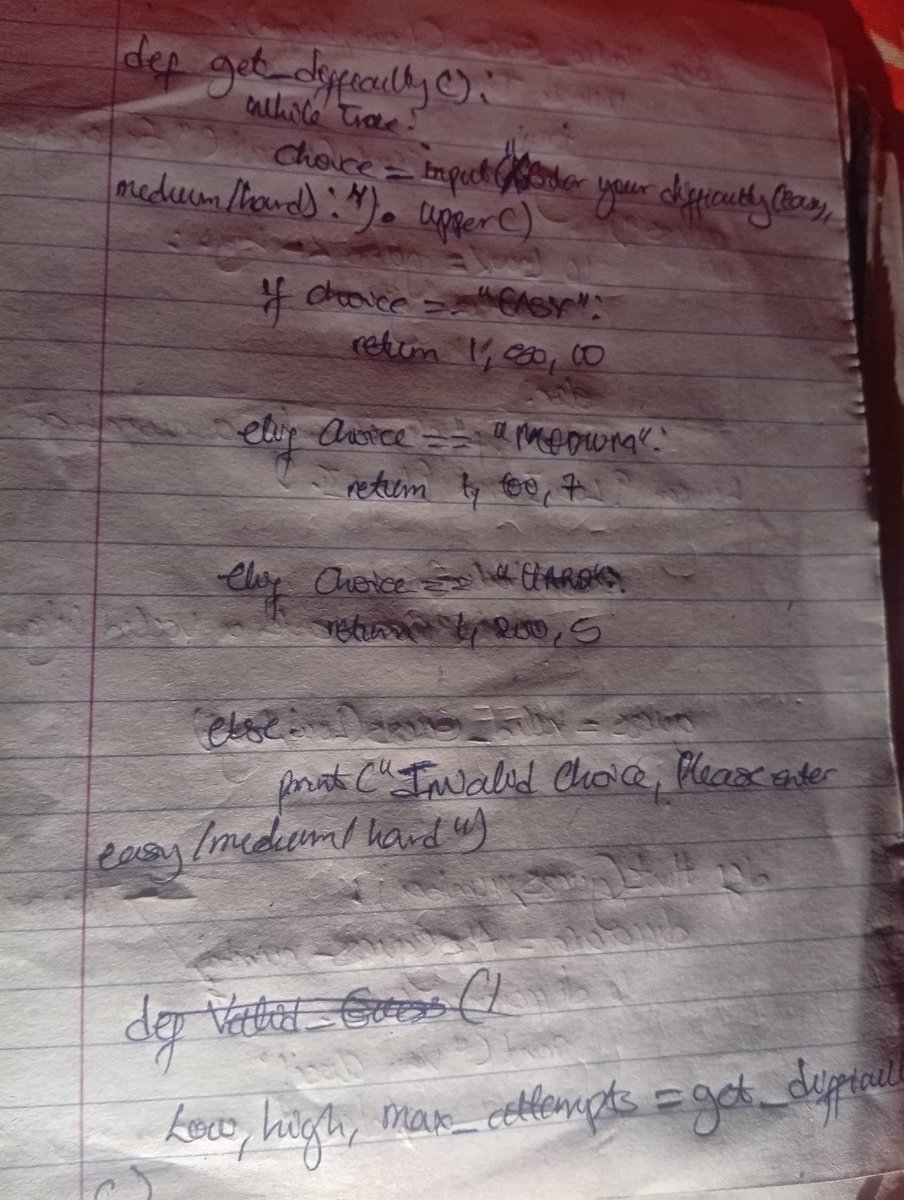 def get_difficulty():
while True:
choice = input(" your difficulty (easy,
medium/hard) : ").upper()
if choice == "EASY":
return 1, 
elif choice == "MEDIUM":
return 1, 7
elif choice == "HARD":
return 1, 200, 5
else:
print("Invalid Choice, Please enter
easy/medium/hard")
def ()
Low, high, max_attempts = get_difficul
()